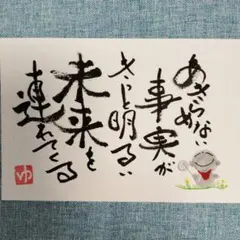 あきらめない
事実が
きっと明るい
未来を
連れてくる
ゆ